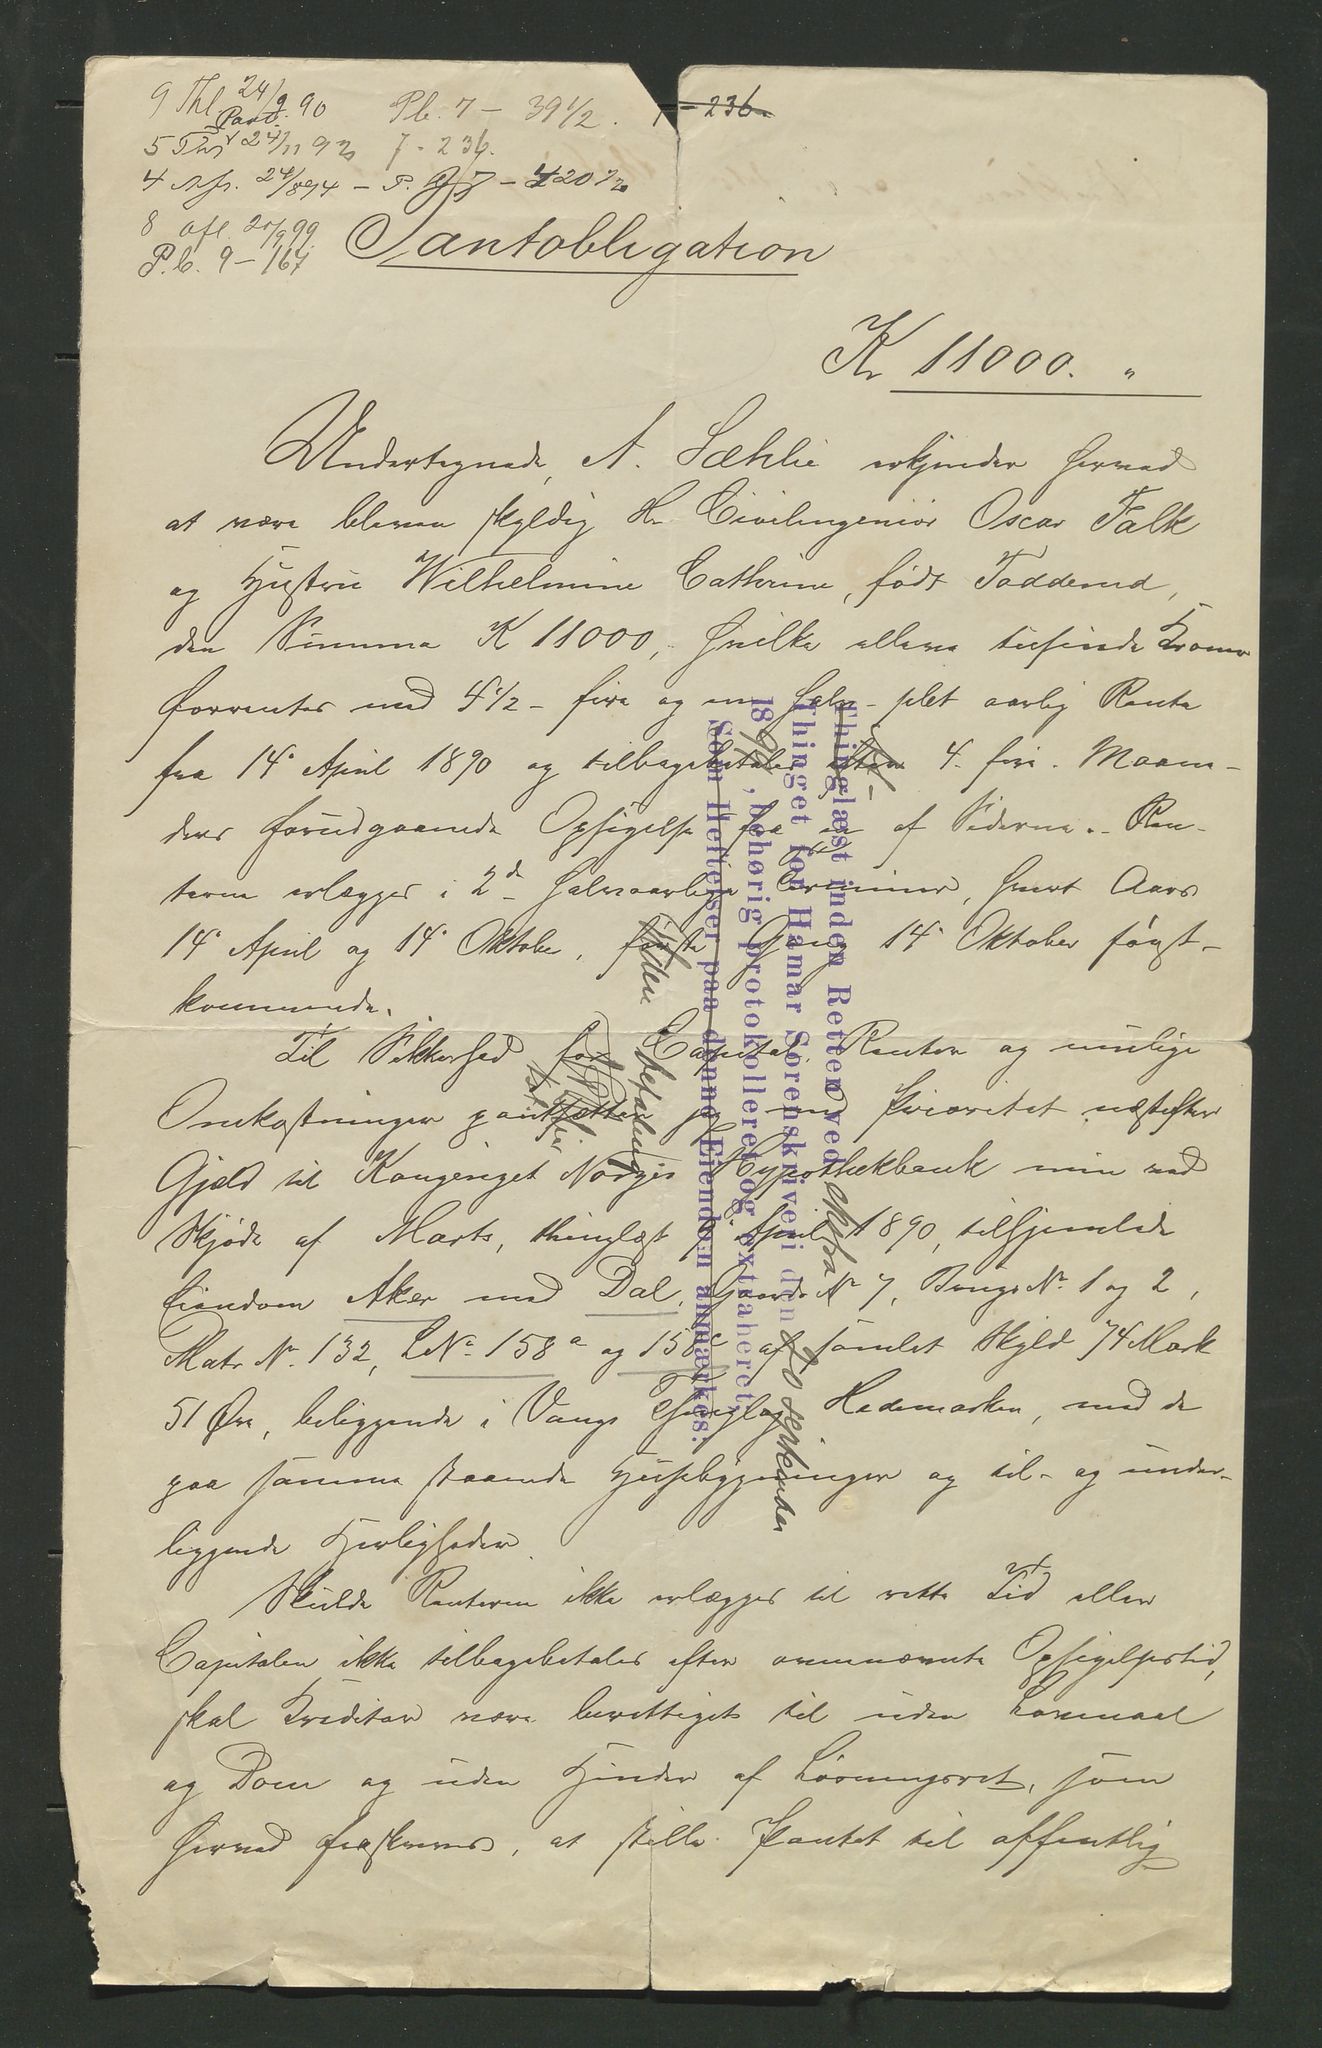 9 Thl. 24/9 90 Pb. 7 - 39 1/2. 7 - 236.
Pant.
5 Ths 24/11 92 7 - 236.
4 24/8 94 - P. - 420
8 afl. 20/9 99.
P.b. 9 - 167
Pantobligation
Kr 11000. "
Undertegnede, A. Sæhlie erkjender herved
at være bleven skyldig Hr. Civilingeniør Oscar Falk
og Hustru Wilhelmine Cathrine, født Todderud,
den Summa Kr 11000, hvilke elleve tusinde Kroner
forrentes med 4 1/2 - fire og en halv - pCt aarlig Rente
fra 14de April 1890 og tilbagebetales efter 4 - fire - Maane-
ders forudgaaende Opsigelse fra en af Siderne. - Ren-
terne erlægges i 2de halvaarlige Terminer, hvert Aars
14de April og 14de Oktober, første Gang 14de Oktober først-
kommende.
Til Sikkerhed for Capital, Renter og mulige
Omkostninger pantsætter jeg med Prioritet næstefter
Gjæld til Kongeriget Norges Hypothekbank min ved
Skjøde af Marts, thinglæst April 1890, tilhjemlede
Eiendom Aker med Dal, Gaards No 7, Brugs No. 1 og 2,
Matr No. 132, LNo 158a og 158c af samlet Skyld 74 Mark
51 Øre, beliggende i Vangs Thinglag, Hedemarken, med de
paa samme staaende Husebygninger og til- og under-
liggende Herligheder.
Skulde Renterne ikke erlægges til rette Tid eller
Capitalen ikke tilbagebetales efter ovennævnte Opsigelsestid,
skal Kreditor være berettiget til uden Lovmaal
og Dom og uden Hinder af Løsningsret, som
herved fraskrives, at stille Pantet til offentlig
Thinglæst inden Retten ved
Thinget for Hamar Sorenskriveri den 20 September
18, behørig protokolleret og extraheret.
Som Heftelser paa denne Eiendom anmærkes: